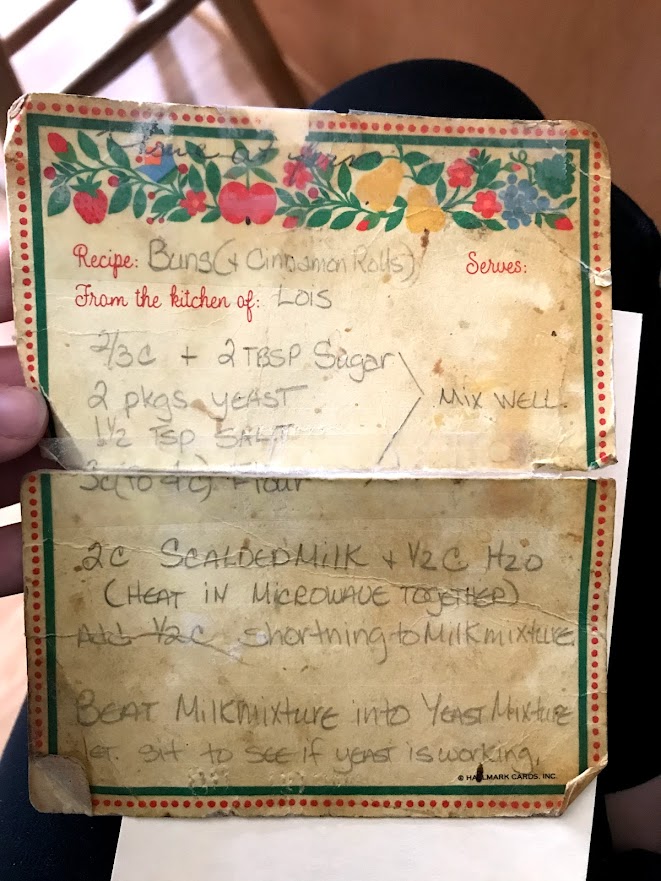 Recipe: Buns (+ Cinnamon Rolls)
Serves:
From the kitchen of: LOIS
2/3c + 2 TBSP Sugar
2 pkgs YEAST
1½ TSP SALT
3c (to 4c) Flour
MIX WELL.
2c SCALDED MILK + ½ C H2O
(HEAT IN MICROWAVE TOGETHER)
Add ½ c shortning to Milk mixture.
BEAT Milkmixture into YEAST MIXTURE
let sit to see if yeast is working.
© HALLMARK CARDS, INC.